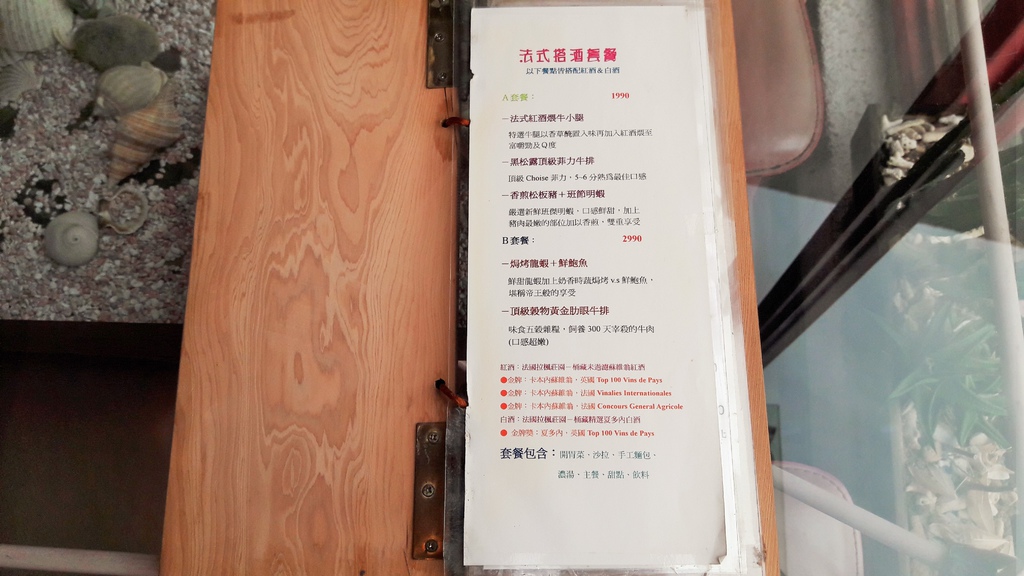 法式搭酒套餐
以下餐點皆搭配紅酒&白酒
A套餐： 1990
－法式紅酒煨牛小腿
特選牛腿以香草醃置入味再加入紅酒煨至
富嚼勁及Q度
－黑松露頂級菲力牛排
頂級 Choise 菲力，5-6 分熟為最佳口感
－香煎松板豬＋班節明蝦
嚴選新鮮班傑明蝦，口感鮮甜，加上
豬肉最嫩的部位加以香煎、雙重享受
B套餐： 2990
－焗烤龍蝦＋鮮鮑魚
鮮甜龍蝦加上奶香時蔬焗烤 v.s 鮮鮑魚，
堪稱帝王般的享受
－頂級穀物黃金肋眼牛排
味食五穀雜糧，飼養 300 天宰殺的牛肉
(口感超嫩)
紅酒：法國拉楓莊園－桶藏未過濾蘇維翁紅酒
●金牌：卡本內蘇維翁，英國 Top 100 Vins de Pays
●金牌：卡本內蘇維翁，法國 Vinalies Internationales
●金牌：卡本內蘇維翁，法國 Concours General Agricole
白酒：法國拉楓莊園－桶藏精選夏多內白酒
● 金牌獎：夏多內，英國 Top 100 Vins de Pays
套餐包含：開胃菜、沙拉、手工麵包、
濃湯、主餐、甜點、飲料